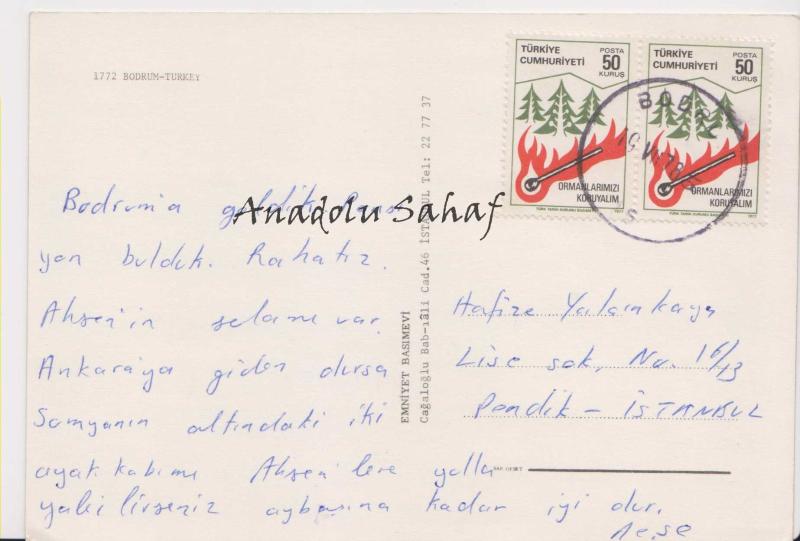 1772 BODRUM-TURKEY
TÜRKİYE CUMHURİYETİ
POSTA
50
KURUŞ
ORMANLARIMIZI KORUYALIM
1977
TÜRKİYE CUMHURİYETİ
POSTA
50
KURUŞ
ORMANLARIMIZI KORUYALIM
1977
Anadolu Sahaf
Bodrum'a geldik.
yon bulduk. Rahatız.
Ahsen'in selamı var.
Ankara'ya giden olursa
Somyanın altındaki iki
ayakkabımı Ahsen'lere yolla
yabilirseniz aybaşına kadar iyi olur.
EMNİYET BASIMEVİ
Cağaloğlu Bab-ıâli Cad.46 İSTANBUL Tel: 22 77 37
Hafize Yalçınkaya
Lise sok. No. 16/13
Pendik - İSTANBUL